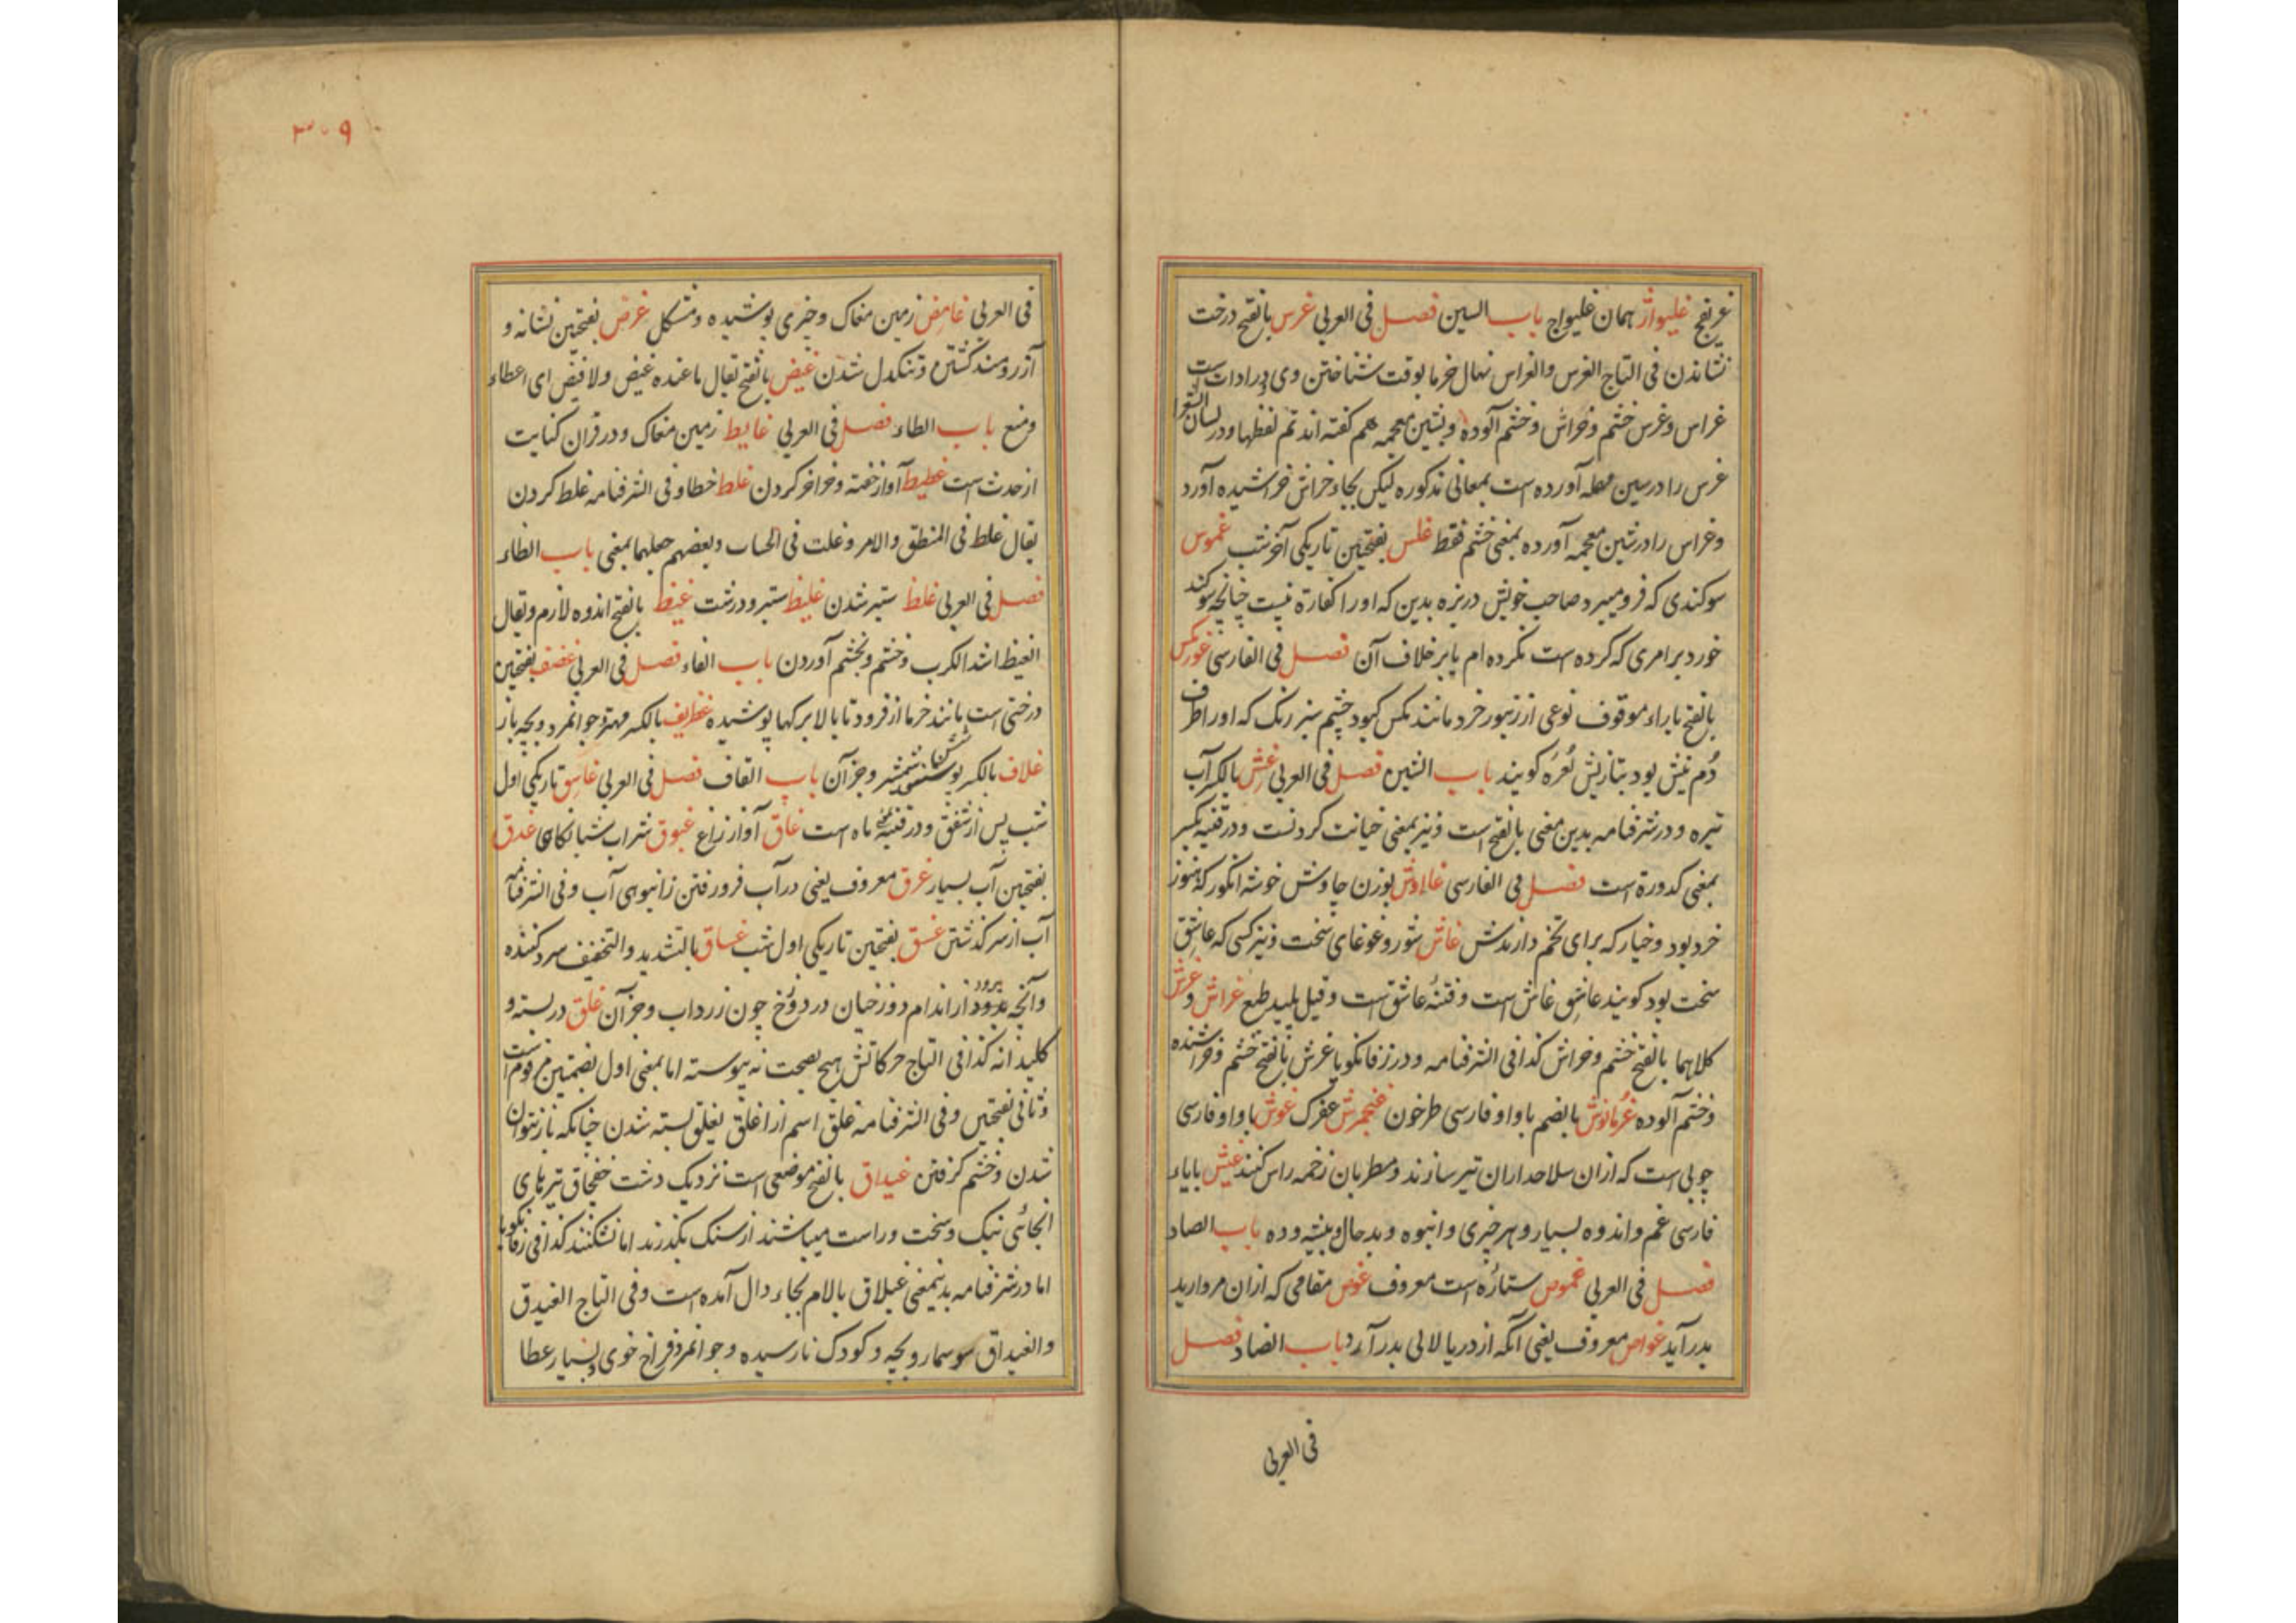 غریفج غلیواژ همان غلیواج باب السین فصل فی العربی غرس بالفتح درخت
نشاندن فی التاج الغرس والغراس نهال خرما بوقت شناختن وی در ادات است
غراس و غرس خشم و خراش و خشم آلوده و بشین معجمه هم کفته اند تم لفظها ودر لسان الشعرا
غرس را در سین مهمله آورده است بمعانی مذکوره لیکن بجاء خراش خراشیده آورد
وغراس را در شین معجمه آورده بمعنی خشم فقط غلس بفتحتین تاریکی آخر شب غموس
سوکندی که فرو میبرد صاحب خویش در بزه بدین که اورا کفارة نیست چنانچه سوکند
خورد بر امری که کرده است نکرده ام یا بر خلاف آن فصل فی الفارسی غورمکس
بالفتح با راء موقوف نوعی از زنبور خرد مانند مکس کبود چشم سبز رنک که اورا طرف
دُم نیش بود بتازیش نُعَره کویند باب الشین فصل فی العربی غش بالکسر آب
تیره و در شرفنامه بدین معنی بالفتح است ونیز بمعنی خیانت کردنست ودر قنیه بکسر
بمعنی کدورة است فصل فی الفارسی غااوش بوزن چاوش خوشه انکور که هنوز
خرد بود و خیار که برای تخم دارندش غاش شور و غوغای سخت ونیز کسی که عاشق
سخت بود کویند عاشق غاش است و فتنهٔ عاشق است وقیل پلید طبع غراش و غرش
کلاهما بالفتح خشم و خراش کذا فی الشرفنامه و در زفانکویا غرش بالفتح خشم و خراشنده
و خشم آلوده غرمانوش بالضم با واو فارسی طرخون غنجرش غفرک غوش با واو فارسی
چوبی است که ازان سلاحداران تیر سازند و مطربان زخمه راس کنند غیش بایاء
فارسی غم و اندوه بسیار و هر چیزی و انبوه و بدحال و بیشه وده باب الصاد
فصل فی العربی غموص ستاره است معروف غوص مقامی که ازان مروارید
بدر آید غواص معروف یعنی آنکه از دریا لالی بدر آرد باب الضاد فصل
فی العربی
۳۰۹
فی العربی غامض زمین مغاک و چیزی پوشیده ومشکل غرض بفتحتین نشانه و
آزرومند کشتن و تنکدل شدن غیض بالفتح یقال ماعنده غیض ولا فیض ای اعطاء
ومنع باب الطاء فصل فی العربی غایط زمین مغاک و در قران کنایت
از حدث است غطیط آواز خفته و خراخر کردن غلط خطا و فی الشرفنامه غلط کردن
یقال غلط فی المنطق والامر وغلت فی الحساب وبعضهم جعلهما بمعنی باب الظاء
فصل فی العربی غلظ ستبر شدن غلیظ ستبر و درشت غیظ بالفتح اندوه لازم ویقال
الغیظ اشد الکرب و خشم و بخشم آوردن باب الفاء فصل فی العربی غضف بفتحتین
درختی است مانند خرما از فرود تا بالا برکها پوشیده غطریف بالکسر مهتر و جوانمرد و بچه باز
غلاف بالکسر پوشش شمشیر و جز آن باب القاف فصل فی العربی غاسق تاریکی اول
شب پس از شفق و در قنیه ماه است غاق آواز زاغ غبوق شراب شبانکاهی غدق
بفتحتین آب بسیار غرق معروف یعنی در آب فرو رفتن ز انبوهی آب و فی الشرفنامه
آب از سر کذشتن غسق بفتحتین تاریکی اول شب غساق بالتشدید والتخفیف سرد کننده
وآنچه برود از اندام دوزخیان در دوزخ چون زرداب و جز آن غلق در بسته و
کلیدانه کذا فی التاج حرکاتش هیچ بصحت نه پیوسته اما بمعنی اول بضمتین مرقوم است
و ثانی بفتحتین و فی الشرفنامه غلق اسم از اغلق یغلق بسته شدن چنانکه باز نتوان
شدن و خشم کرفتن غیداق بالفتح موضعی است نزدیک دشت خفچاق تیرهای
انجائی نیک و سخت و راست میباشند از سنک بکذرند اما نشکنند کذا فی زفانکویا
اما در شرفنامه بدینمعنی غیلاق بالام بجاء دال آمده است و فی التاج الغیدق
والغیداق سوسمار و بچه و کودک نارسیده و جوانمرد فراخ خوی و بسیار عطا